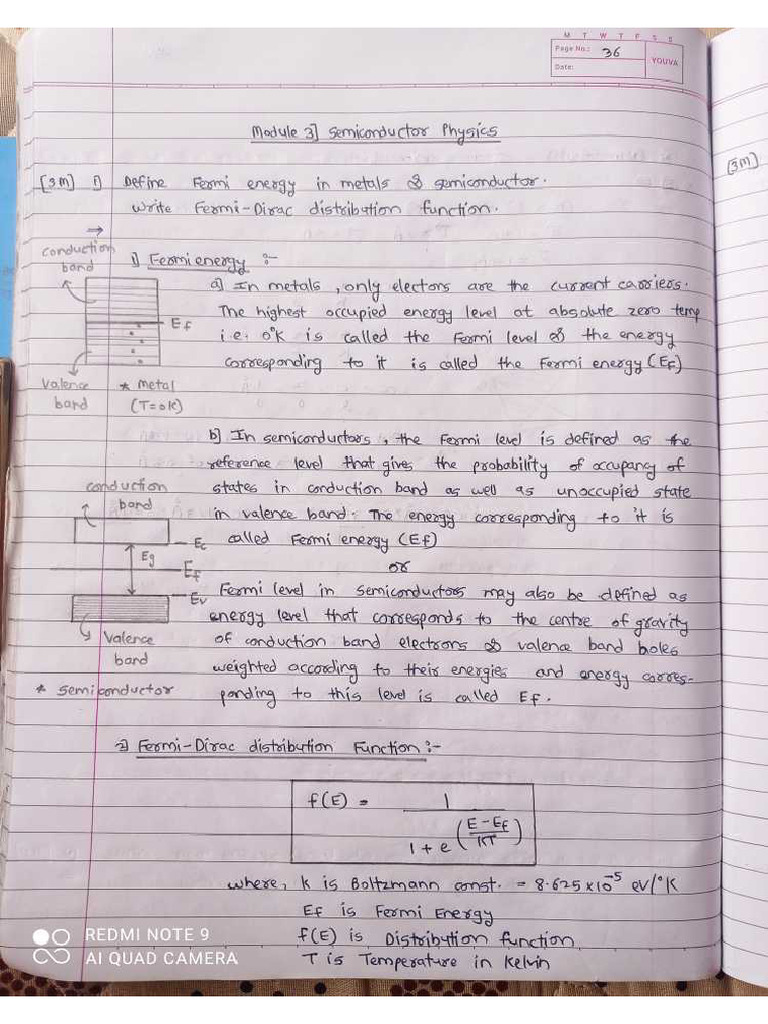 M T W T F S S
Page No.: 36
Date:
YOUVA
Module 3] Semiconductor Physics
[3M]
[3M] 1) Define Fermi energy in metals & semiconductor.
Write Fermi-Dirac distribution function.
→
conduction
band
Ef
Valence
band
* Metal
(T=0K)
1) Fermi energy :-
a) In metals, only electons are the current carriers.
The highest occupied energy level at absolute zero temp
i.e. 0°K is called the Fermi level & the energy
corresponding to it is called the Fermi energy (EF)
b] In semiconductors, the Fermi level is defined as the
reference level that gives the probability of occupancy of
states in conduction band as well as unoccupied state
in valence band. The energy corresponding to it is
called Fermi energy (Ef)
or
Fermi level in semiconductors may also be defined as
energy level that corresponds to the centre of gravity
of conduction band electrons & valence band holes
weighted according to their energies and energy corres-
ponding to this level is called Ef.
conduction
band
Ec
Eg
Ef
Ev
Valence
band
* Semiconductor
2) Fermi-Dirac distribution Function :-
f(E) = 1 / 1 + e^((E - Ef)/KT)
where, K is Boltzmann const. = 8.625 x 10^-5 eV/°K
Ef is Fermi Energy
f(E) is Distribution function
T is Temperature in Kelvin
REDMI NOTE 9
AI QUAD CAMERA